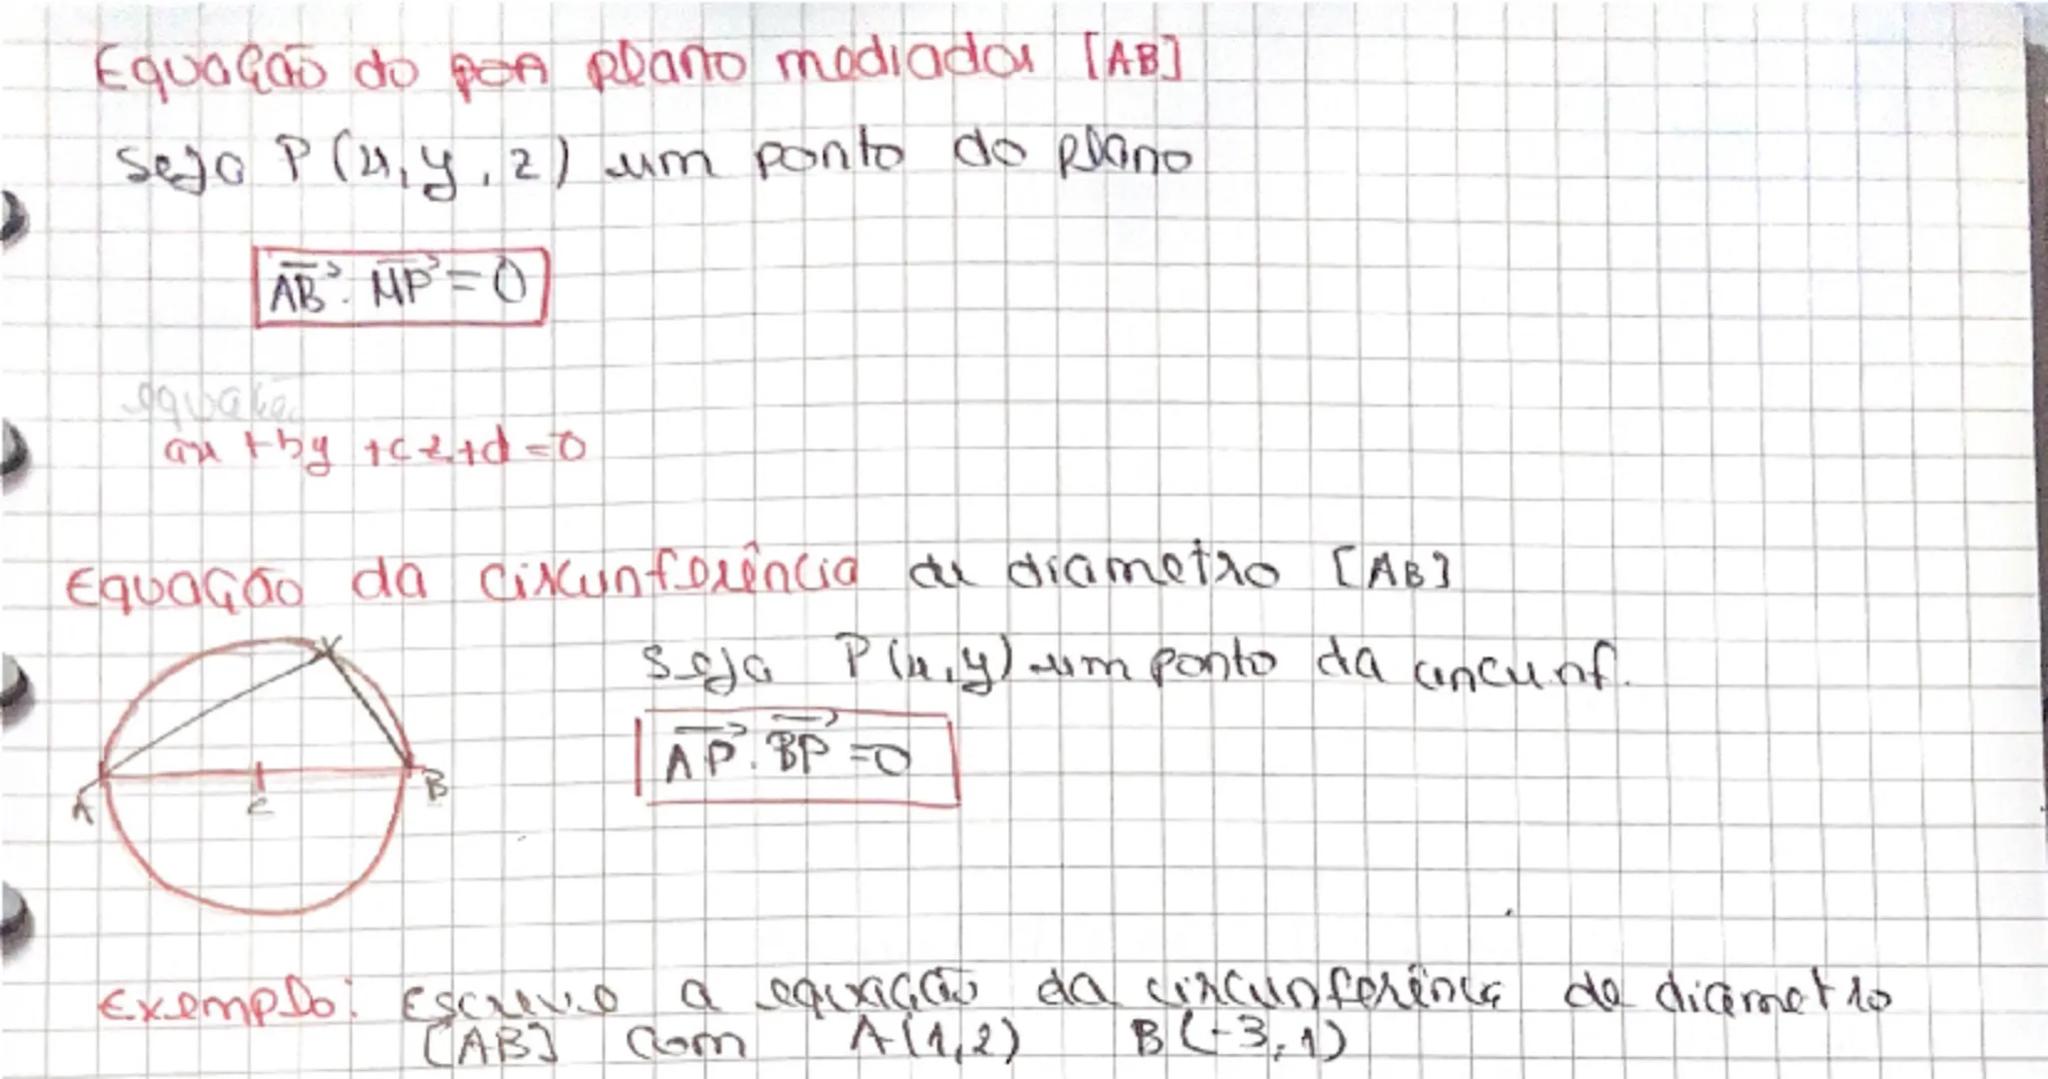 Equação do pon plano mediador [AB]
Seja P(x, y, z) um ponto do plano
AB⃗ · MP⃗ = 0
equação
ax + by + cz + d = 0
Equação da circunferência de diametro [AB]
Seja P(x,y) um ponto da circunf.
AP⃗ · BP⃗ = 0
A C B
Exemplo: Escreve a equação da circunferência de diametro
[AB] com A(1,2) B(-3,1)